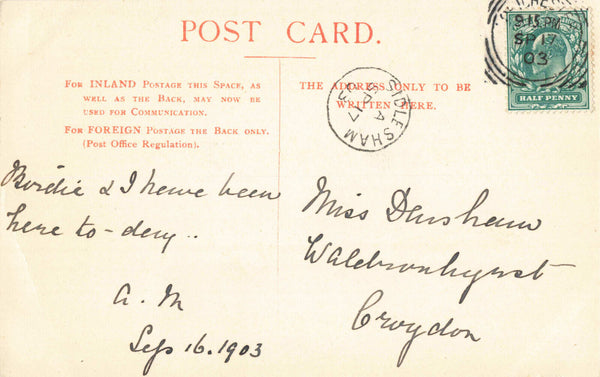 POST CARD.
FOR INLAND POSTAGE THIS SPACE, AS
WELL AS THE BACK, MAY NOW BE
USED FOR COMMUNICATION.
FOR FOREIGN POSTAGE THE BACK ONLY.
(Post Office Regulation).
THE ADDRESS ONLY TO BE
WRITTEN HERE.
SIDLESHAM
A
SP 17
03
9.15 PM
SP 17
03
HALF PENNY
Birdie & I have been
here to-day..
A. M
Sep 16. 1903
Miss Densham
Waldronhyrst
Croydon